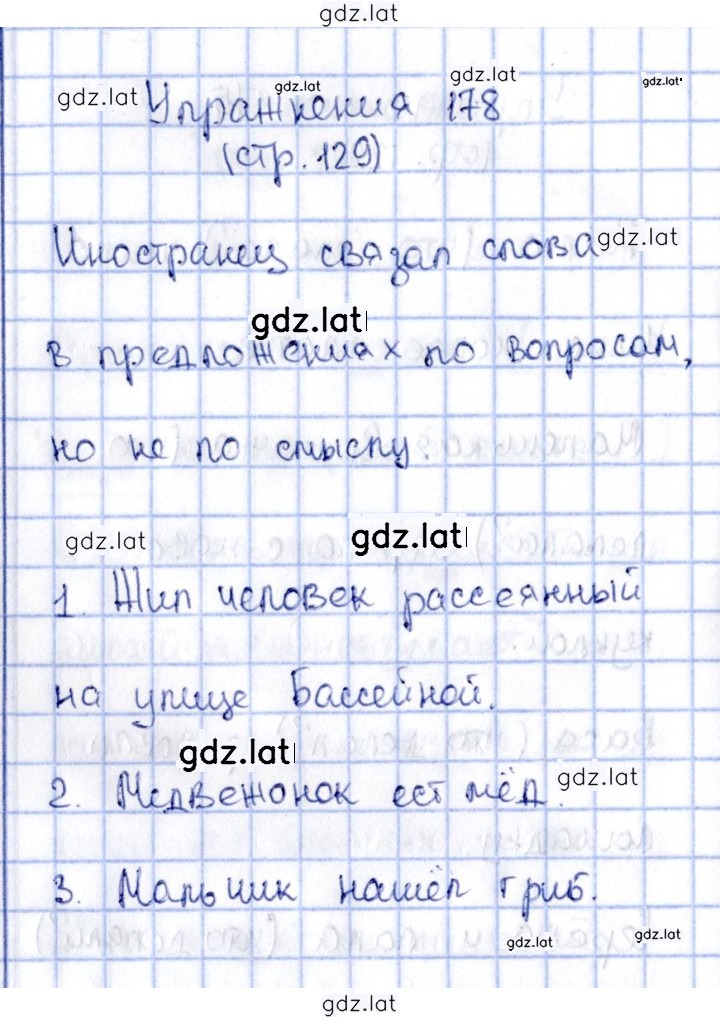 gdz.lat
gdz.lat gdz.lat gdz.lat gdz.lat
Упражнения 178
(стр. 129)
Иностранец связал слова gdz.lat
gdz.lat
в предложениях по вопросам,
но не по смыслу.
gdz.lat gdz.lat
1. Жил человек рассеянный
на улице Бассейной.
gdz.lat
2. Медвежонок ест мёд. gdz.lat
3. Мальчик нашёл гриб.
gdz.lat gdz.lat
gdz.lat